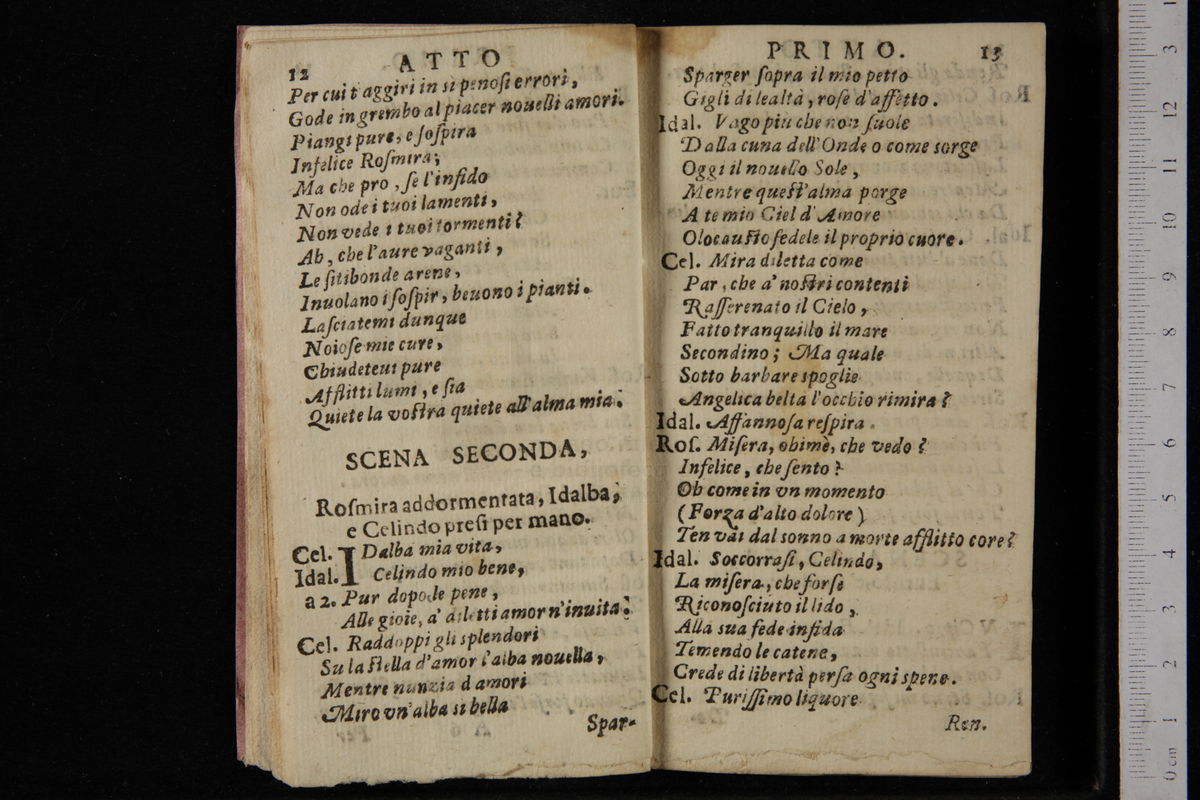 12 ATTO
Per cui t'aggiri in sì penosi errori,
Gode in grembo al piacer nouelli amori.
Piangi pure, e sospira
Infelice Rosmira;
Ma che pro, se l'infido
Non ode i tuoi lamenti,
Non vede i tuoi tormenti?
Ah, che l'aure vaganti,
Le sitibonde arene,
Inuolano i sospir, beuono i pianti.
Lasciatemi dunque
Noiose mie cure,
Chiudeteui pure
Afflitti lumi, e sia
Quiete la vostra quiete all'alma mia.
SCENA SECONDA,
Rosmira addormentata, Idalba,
e Celindo presi per mano.
Cel. IDalba mia vita,
Idal. Celindo mio bene,
a 2. Pur dopo le pene,
Alle gioie, a' diletti amor n'inuita.
Cel. Raddoppi gli splendori
Su la stella d'amor l'alba nouella,
Mentre nunzia d'amori
Miro vn'alba sì bella
Spar-
PRIMO. 13
Sparger sopra il mio petto
Gigli di lealtà, rose d'affetto.
Idal. Vago più che non suole
Dalla cuna dell'Onde o come sorge
Oggi il nouello Sole,
Mentre quest'alma porge
A te mio Ciel d'Amore
Olocausto fedele il proprio cuore.
Cel. Mira diletta come
Par, che a' nostri contenti
Rasserenato il Cielo,
Fatto tranquillo il mare
Secondino; Ma quale
Sotto barbare spoglie
Angelica beltà l'occhio rimira?
Idal. Affannosa respira.
Ros. Misera, ohimè, che vedo?
Infelice, che sento?
Oh come in vn momento
(Forza d'alto dolore)
Ten vai dal sonno a morte afflitto core?
Idal. Soccorrasi, Celindo,
La misera, che forse
Riconosciuto il lido,
Alla sua fede infida
Temendo le catene,
Crede di libertà persa ogni spene.
Cel. Purissimo liquore
Ren.